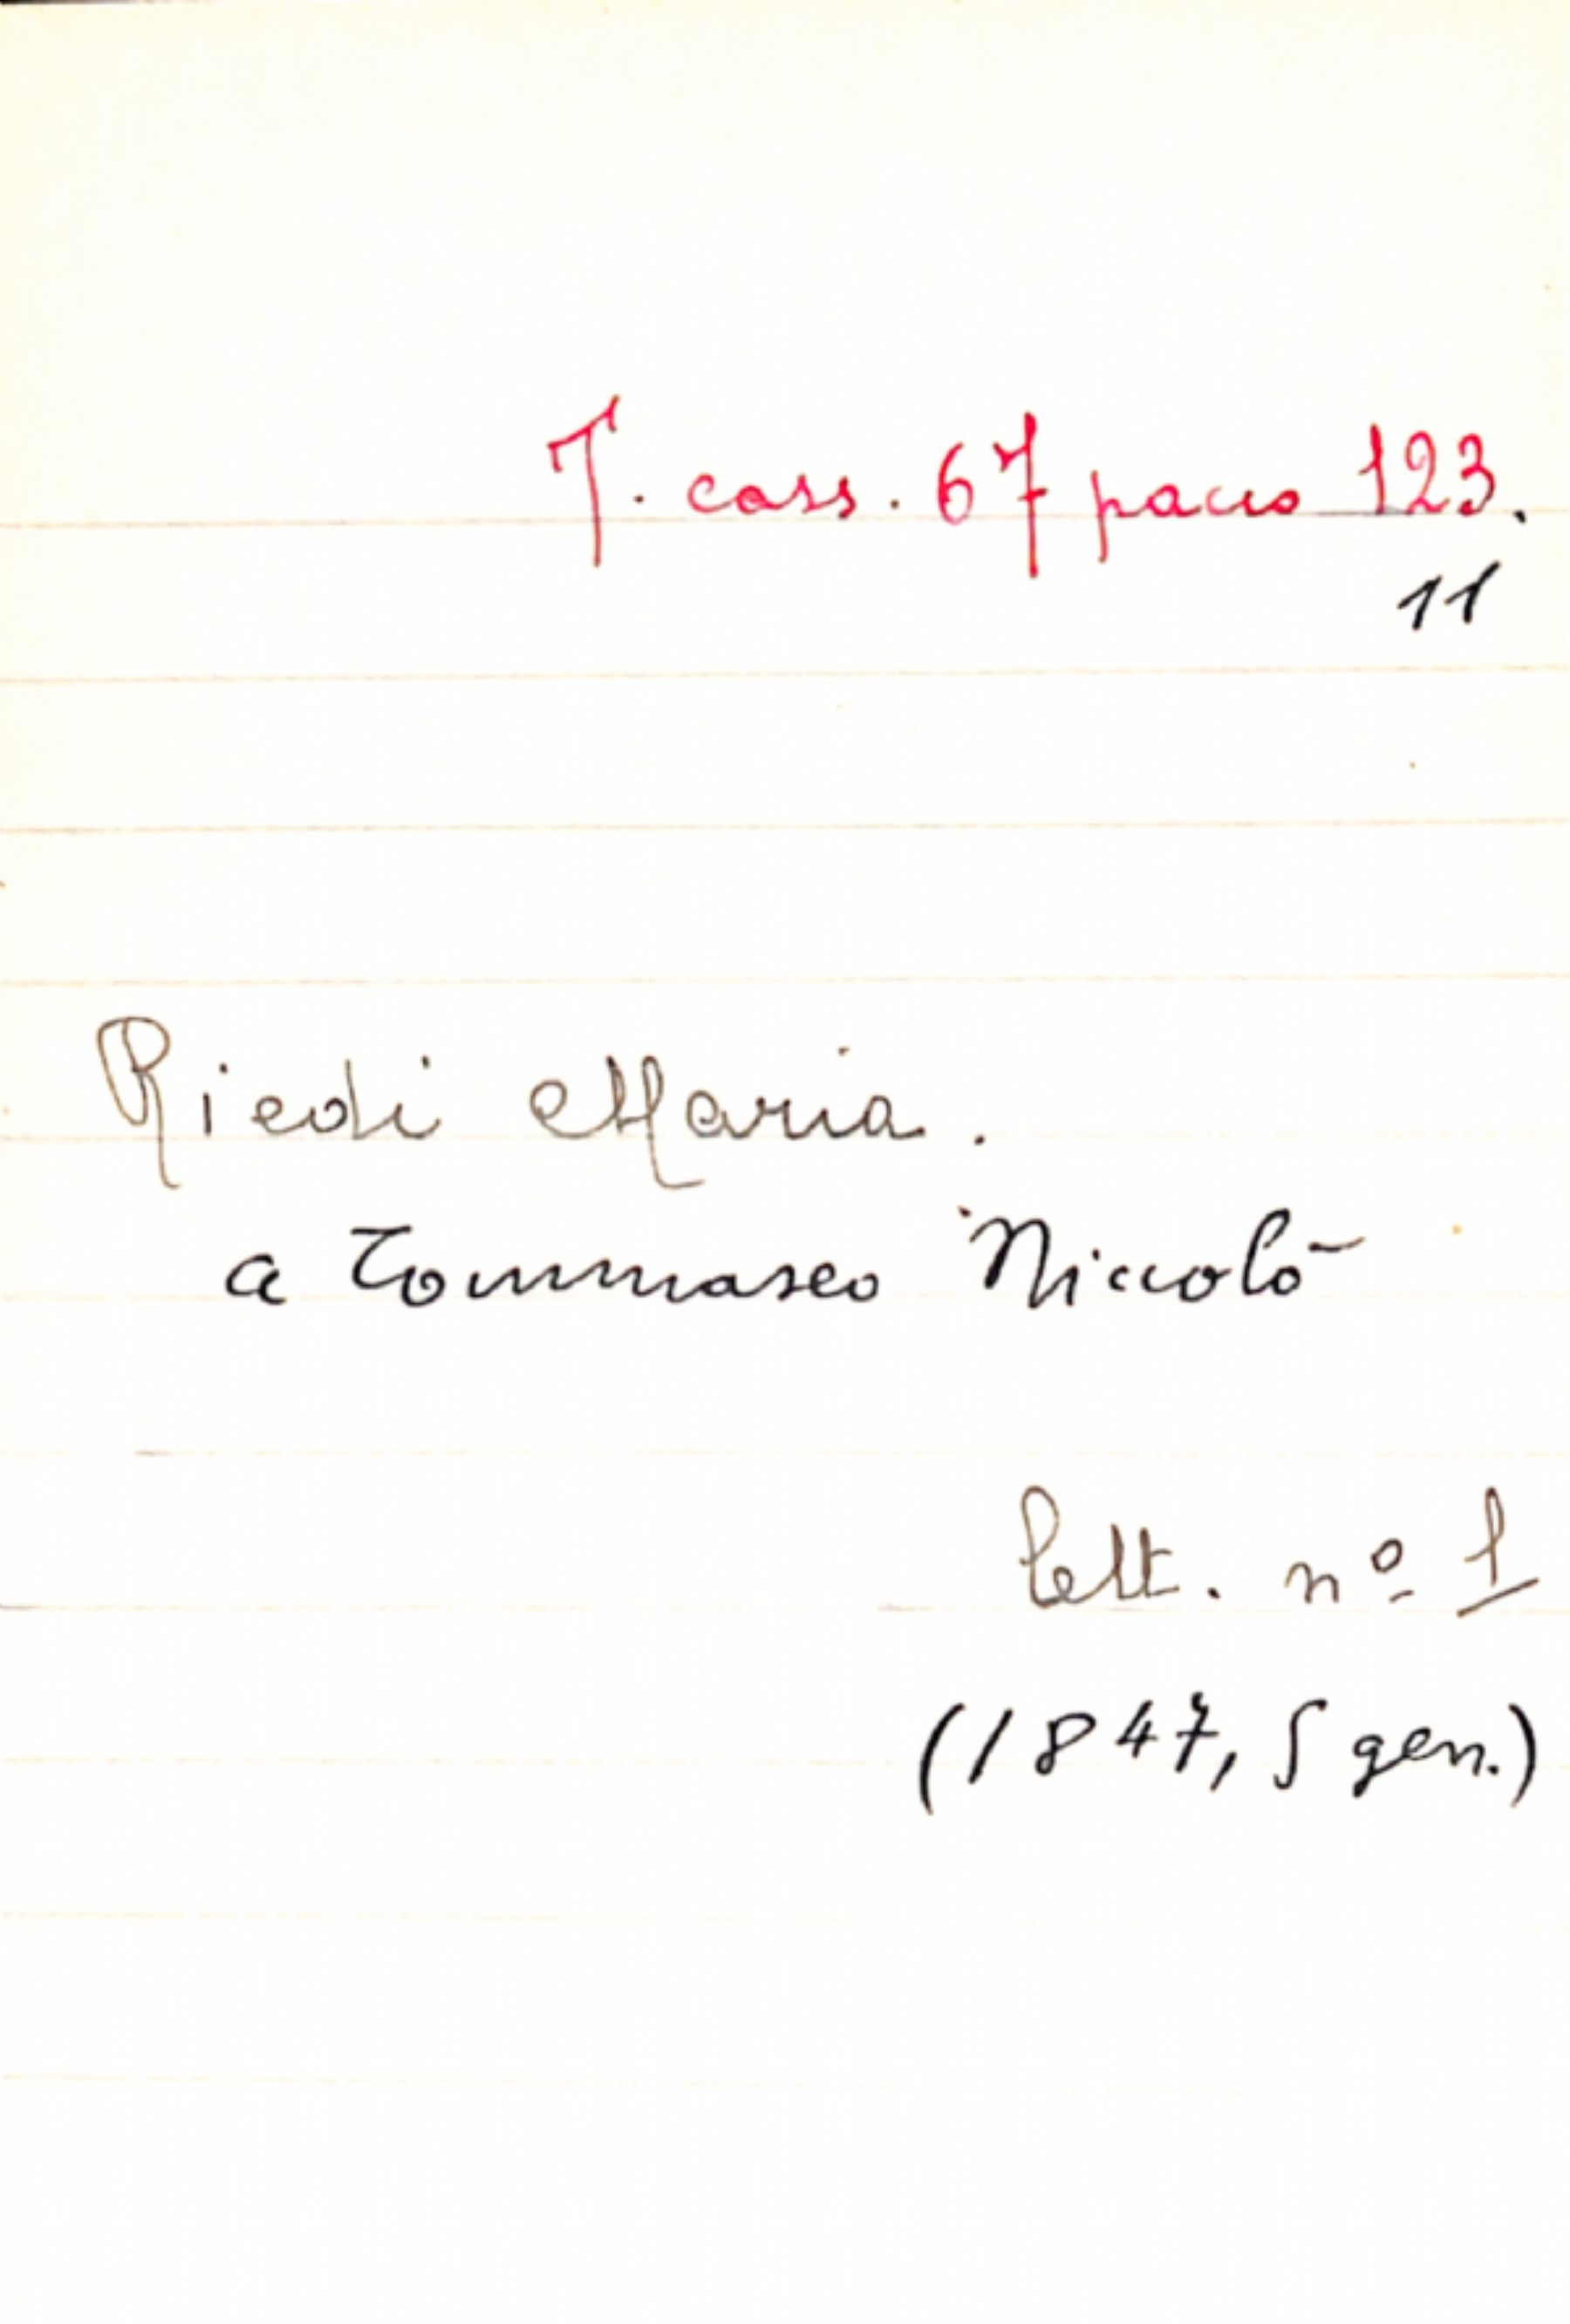 T. cass. 67 pacco 123.
11
Riedi Maria.
a Tommaseo Niccolò
lett. nº 1
(1847, 5 gen.)